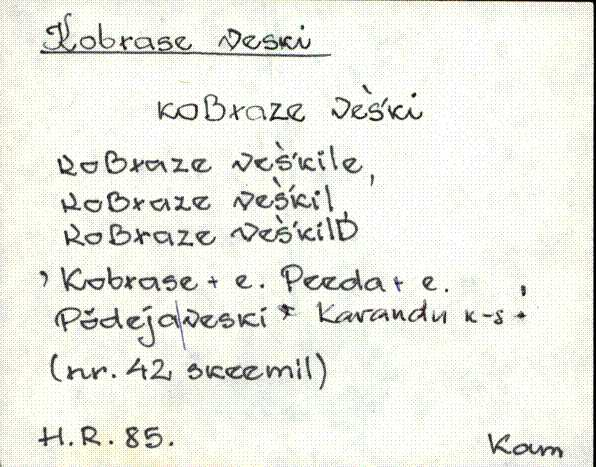 Kobrase veski
koBraze vèśki
koBraze vèśkile,
koBraze vèśkil,
koBraze vèśkilD
, Kobrase + e. Peeda + e.
Põdeja veski * Karandu k-s.
(nr. 42 skeemil)
H.R. 85.
Kam